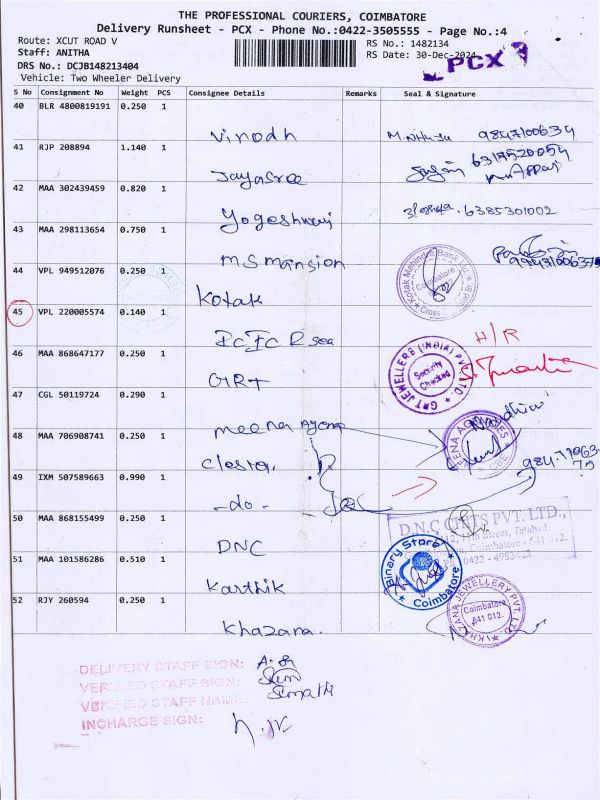 THE PROFESSIONAL COURIERS, COIMBATORE
Delivery Runsheet - PCX - Phone No.:0422-3505555 - Page No.:4
Route: XCUT ROAD V
RS No.: 1482134
Staff: ANITHA
RS Date: 30-Dec-2024
PCX
DRS No.: DCJB148213404
Vehicle: Two Wheeler Delivery
S No Consignment No Weight PCS Consignee Details Remarks Seal & Signature
40 BLR 4800819191 0.250 1
Vinodh
41 RJP 208894 1.140 1
Jayasree
42 MAA 302439459 0.820 1
Yogeshwari 6385301002
43 MAA 298113654 0.750 1
MS mansion
44 VPL 949512076 0.250 1
Kotak Mahindra Bank Ltd. Coimbatore Cross
Kotak
45 VPL 220005574 0.140 1
H/R
46 MAA 868647177 0.250 1
GRT JEWELLERS (INDIA) PVT LTD Security Checked
GRT
47 CGL 50119724 0.290 1
meena
48 MAA 706908741 0.250 1
49 IXM 507589663 0.990 1
-do-
50 MAA 868155499 0.250 1
D.N.C CHITS PVT. LTD.,
Street, Tatabad,
Coimbatore - 641 012.
DNC
51 MAA 101586286 0.510 1
Binary Store Coimbatore
Karthik
52 RJY 260594 0.250 1
KHAZANA JEWELLERY PVT LTD Coimbatore 641 012.
Khazana.
DELIVERY STAFF SIGN:
VERIFIED STAFF SIGN:
VERIFIED STAFF NAME:
Sumathi
INCHARGE SIGN: